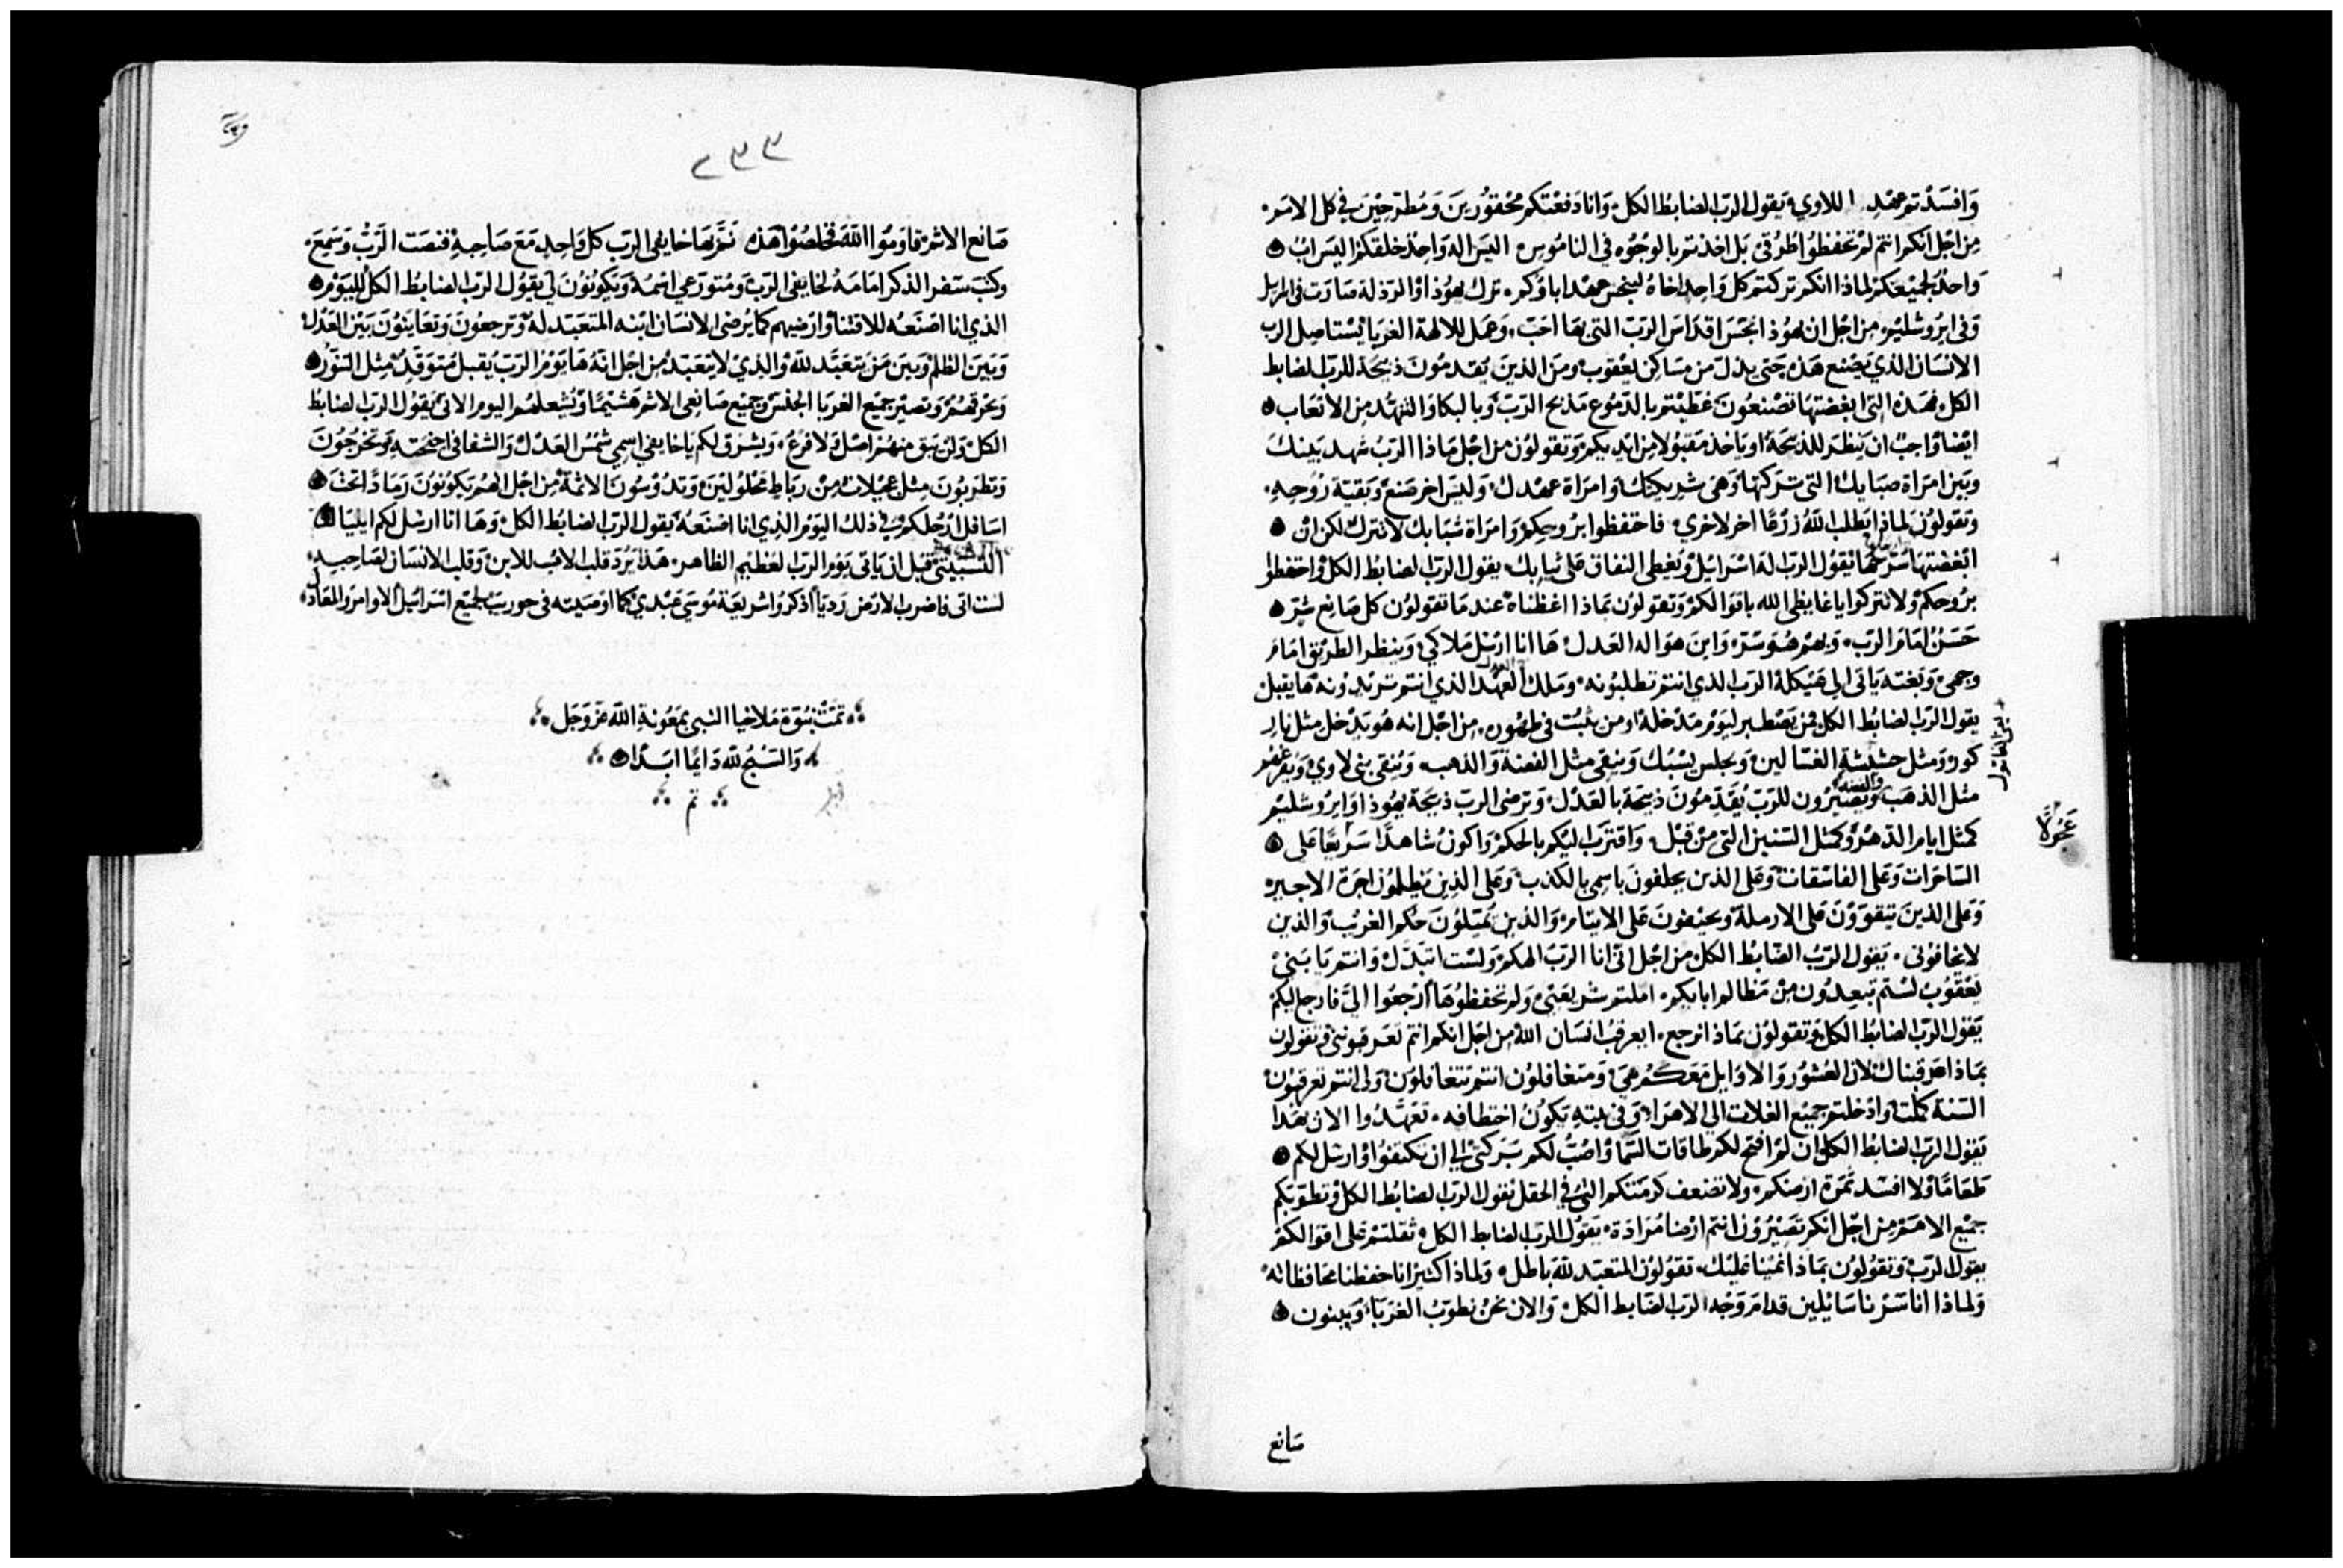 وافسدتم عهد اللاوي يقول الرب الضابط الكل وانا دفعتكم محقورين ومطرحين في كل الامم
من اجل انكم انتم لم تحفظوا طرقي بل اخذتم بالوجوه في الناموس اليس اله واحد خلقكم اليس اب
واحد لجميعكم لماذا انكم تركتم كل واحد اخاه لينجس عهد اباوكم ترك يهوذا والرذلة صارت في اسراييل
وفي ايروشليم من اجل ان يهوذا نجس اقداس الرب التي بها احب وعمل للالهة الغربا يستاصل الرب
الانسان الذي يصنع هذه حتي يذل من مساكن يعقوب ومن الذين يقدمون ذبيحة للرب الضابط
الكل فهذه التي ابغضتها تصنعون غطيتم بالدموع مذبح الرب وبالبكا والتنهد من الاتعاب
ايضا واجب ان ينظر للذبيحة او ياخذ مقبولا من ايديكم وتقولون من اجل ماذا الرب شهد بينك
وبين امراة صبايك التي تركتها وهي شريكتك وامراة عهدك وليس اخر صنع وبقية روحه
وتقولون لماذا يطلب الله زرعا اخر لاخري فاحتفظوا بروحكم وامراة شبابك لا تترك لكن ان
ابغضتها سرحها يقول الرب اله اسراييل ويغطي النفاق علي ثيابك يقول الرب الضابط الكل واحتفظوا
بروحكم ولا تتركوا يا غايظي الله باقوالكم وتقولون بماذا اغظناه عند ما تقولون كل صانع شر
حسن امام الرب وبهم هو سر واين هو اله العدل ها انا ارسل ملاكي وينظر الطريق امام
وجهي وبغتة ياتي الي هيكله الرب الذي انتم تطلبونه وملك العهد الذي انتم تريدونه ها يقبل
يقول الرب الضابط الكل فمن يصطبر ليوم مدخله او من يثبت في ظهوره من اجل انه هو يدخل مثل نار
كور ومثل حشيشة الغسالين ويجلس يسبك وينقي مثل الفضة والذهب وينقي بني لاوي ويفرغهم
مثل الذهب والفضة ويصيرون للرب يقدمون ذبيحة بالعدل وترضي الرب ذبيحة يهوذا وايروشليم
كمثل ايام الدهر وكمثل السنين التي من قبل واقترب اليكم بالحكم واكون شاهدا سريعا علي
الساحرات وعلي الفاسقات وعلي الذين يحلفون باسمي بالكذب وعلي الذين يظلمون اجرة الاجير
وعلي الذين يتقوون علي الارملة ويحيفون علي الايتام والذين يميلون حكم الغريب والذين
لا يخافوني يقول الرب الضابط الكل من اجل اني انا الرب الهكم ولست اتبدل وانتم يا بني
يعقوب لستم تبعدون من مظالم ابايكم املتم شريعتي ولم تحفظوها ارجعوا الي فارجع اليكم
يقول الرب الضابط الكل وتقولون بماذا نرجع ايعرقب انسان الله من اجل انكم انتم تعرقبونني وتقولون
بماذا عرقبناك لان العشور والاوايل معكم هي ومتغافلون انتم تتغافلون ولي انتم تعرقبون
السنة كملت وادخلتم جميع الغلات الي الاهرا وفي بيته يكون اختطافه تعهدوا الان هذا
يقول الرب الضابط الكل ان لم افتح لكم طاقات السما واصب لكم بركتي الي ان تكتفوا وارسل لكم
طعاما ولا افسد ثمرة ارضكم ولا تضعف كرمتكم التي في الحقل يقول الرب الضابط الكل وتطوبكم
جميع الامم من اجل انكم تصيرون انتم ارضا مرادة يقول الرب الضابط الكل ثقلتم علي اقوالكم
يقول الرب وتقولون بماذا نمينا عليك تقولون المتعبد لله باطل ولماذا اكثير انا حفظنا محافظاته
ولماذا اننا سرنا سايلين قدام وجه الرب الضابط الكل والان نحن نطوب الغربا ويبنون
بني القاتول
عجولا
صانع
٢٣٣
صانع الاثم قاوموا الله فخلصوا هذه نمر بها خايفي الرب كل واحد مع صاحبه فنصت الرب وسمع
وكتب سفر الذكر امامه لخايفي الرب ومتورعي اسمه ويكونون لي يقول الرب الضابط الكل لليوم
الذي انا اصنعه للاقتنا وارضيهم كما يرضي الانسان ابنه المتعبد له وترجعون وتعاينون بين العدل
وبين الظلم وبين من يتعبد لله والذي لا يتعبد من اجل انه ها يوم الرب يقبل متوقد مثل التنور
ويحرقهم ويصير جميع الغربا الجنس وجميع صانعي الاثم هشيما ويشعلهم اليوم الاتي يقول الرب الضابط
الكل ولن يبق منهم اصل ولا فرع ويشرق لكم يا خايفي اسمي شمس العدل والشفا في اجنحته وتخرجون
وتطربون مثل عجيلات من رباط محلولين وتدوسون الاثمة من اجل انهم يكونون رمادا تحت
اسافل ارجلكم في ذلك اليوم الذي انا اصنعه يقول الرب الضابط الكل وها انا ارسل لكم ايليا
التسبيتي قبل ان ياتي يوم الرب العظيم الظاهر هذا يرد قلب الاب للابن وقلب الانسان لصاحبه
لست اتي فاضرب الارض رديا اذكروا شريعة موسي عبدي كما اوصيته في حوريب لجميع اسراييل الاوامر والمعادل
تمت نبوة ملاخيا النبي بمعونة الله عز وجل
والسبح لله دايما ابدا
تم